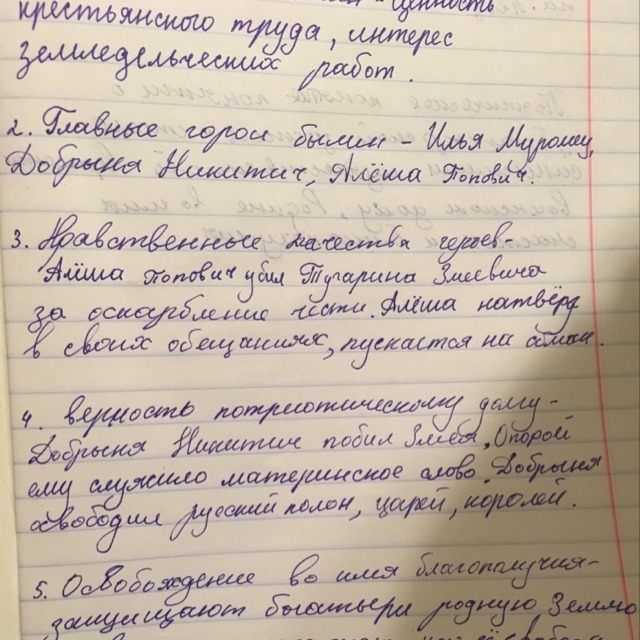 ценность
крестьянского труда, интерес
земледельческих работ.
2. Главные герои былин - Илья Муромец,
Добрыня Никитич, Алёша Попович.
3. Нравственные качества героев-
Алёша Попович убил Тугарина Змеевича
за оскарбление чести. Алёша натвёрд
в своих обещаниях, пускается на обман.
4. верность потриотическому долгу-
Добрыня Никитич побил Змея, Опорой
ему служило материнское слово. Добрыня
освободил русский полон, царей, королей.
5. Освобождение во имя благополучия-
защищают богатыри родную Землю